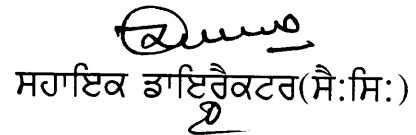 ਸਹਾਇਕ ਡਾਇਰੈਕਟਰ(ਸੈ:ਸਿ:)